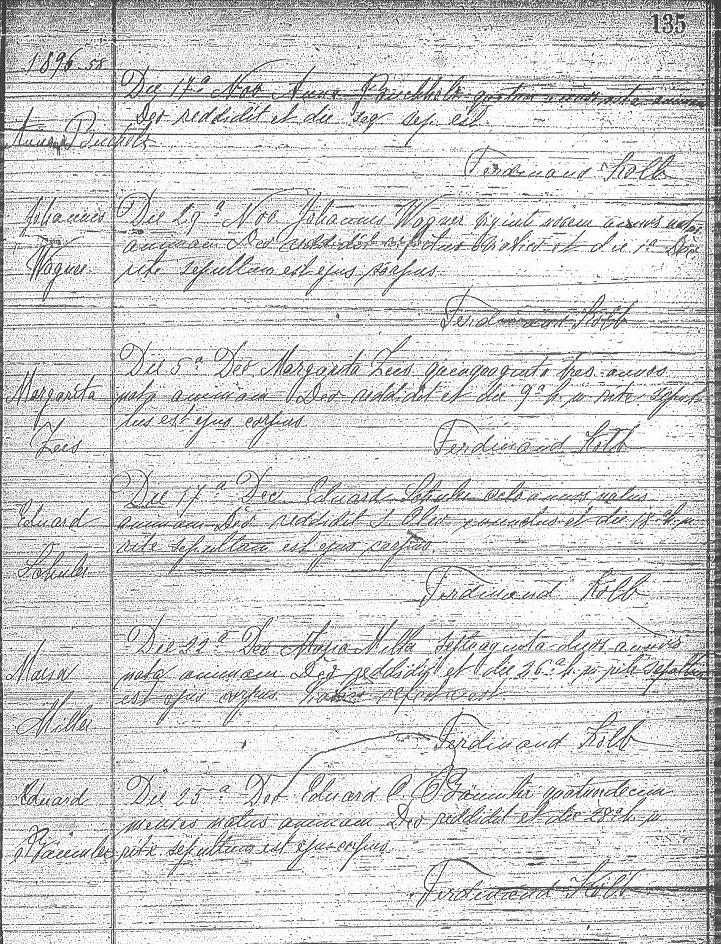 135
1896
Die 17ª Nov Anna Buchholz
Deo reddidit et die seq sep. est.
Anna Buchholz
Ferdinand Kolb
Johannes Wagner
Die 29ª Nov. Johannes Wagner viginti novem annos natus
animam Deo reddidit et die 1ª Dec.
rite sepultum est ejus corpus.
Ferdinand Kolb
Margarita Zeis
Die 5ª Dec Margarita Zeis quinquaginta tres annos
nata animam Deo reddidit et die 9ª h. m rite sepul-
tus est ejus corpus
Ferdinand Kolb
Eduard Schuler
Die 17ª Dec. Eduard Schuler octo annos natus
animam Deo reddidit S. Oleo et die h. m.
rite sepultum est ejus corpus.
Ferdinand Kolb
Maria Miller
Die 22ª Dec Maria Miller septuaginta duos annos
nata animam Deo reddidit et die 26ª h. m rite sepultum
est ejus corpus. est
Ferdinand Kolb
Eduard
Die 25ª Dec Eduard C. quatuordecim
menses natus animam Deo reddidit et die 28ª h. m
rite sepultum est ejus corpus.
Ferdinand Kolb